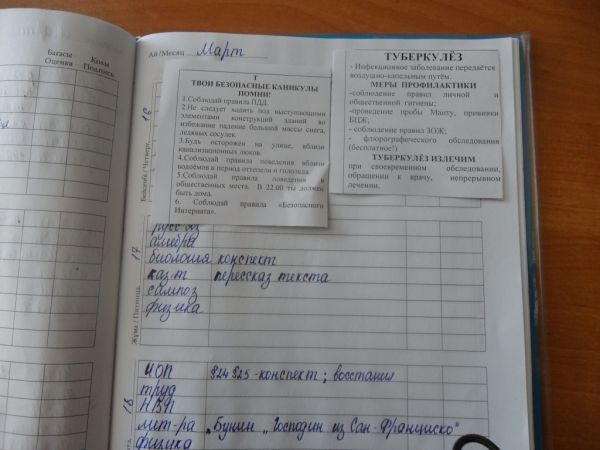 Бағасы
Оценка
Қолы
Подпись
Ай /Месяц Март
Т
ТВОИ БЕЗОПАСНЫЕ КАНИКУЛЫ
ПОМНИ!
1.Соблюдай правила ПДД.
2.Не следует ходить под выступающими
элементами конструкций зданий во
избежание падение большой массы снега,
ледяных сосулек.
3.Будь осторожен на улице, вблизи
канализационных люков.
4.Соблюдай правила поведения вблизи
водоёмов в период оттепели и гололеда.
5.Соблюдай правила поведения в
общественных места. В 22.00 ты должен
быть дома.
6. Соблюдай правила «Безопасного
Интернета».
ТУБЕРКУЛЁЗ
- Инфекционное заболевание передаётся
воздушно-капельным путём.
МЕРЫ ПРОФИЛАКТИКИ
-соблюдение правил личной и
общественной гигиены;
-проведение пробы Манту, прививки
БЦЖ;
- соблюдение правил ЗОЖ;
- флюрографического обследования
(бесплатное!)
ТУБЕРКУЛЁЗ ИЗЛЕЧИМ
при своевременном обследовании,
обращении к врачу, непрерывном
лечении.
16
Бейсенбі / Четверг
17
Жұма / Пятница
русс яз
алгебра
биология конспект
каз-т перессказ текста
сампоз
физика
18
ИОП §24 §25 -конспект ; восстания
труд
НВП
лит-ра „Бунин „Господин из Сан-Франциско"
физика